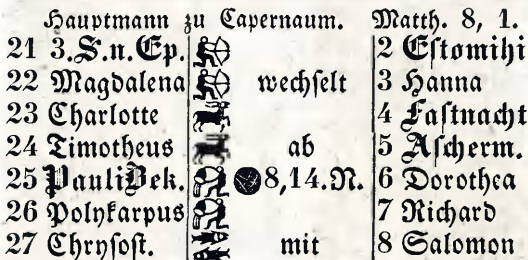 Hauptmann zu Capernaum. Matth. 8, 1.
21 3.S.n.Ep. 2 Estomihi
22 Magdalena wechselt 3 Hanna
23 Charlotte 4 Fastnacht
24 Timotheus ab 5 Ascherm.
25 PauliBek. 8,14.N. 6 Dorothea
26 Polykarpus 7 Richard
27 Chrysost. mit 8 Salomon